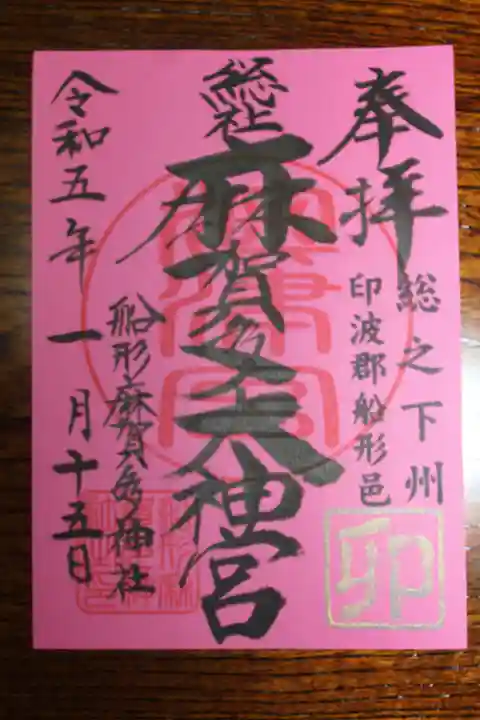 奉拝
総之下州
印波郡船形邑
卯
総社
麻賀多大神宮
船形麻賀多神社
令和五年一月十五日